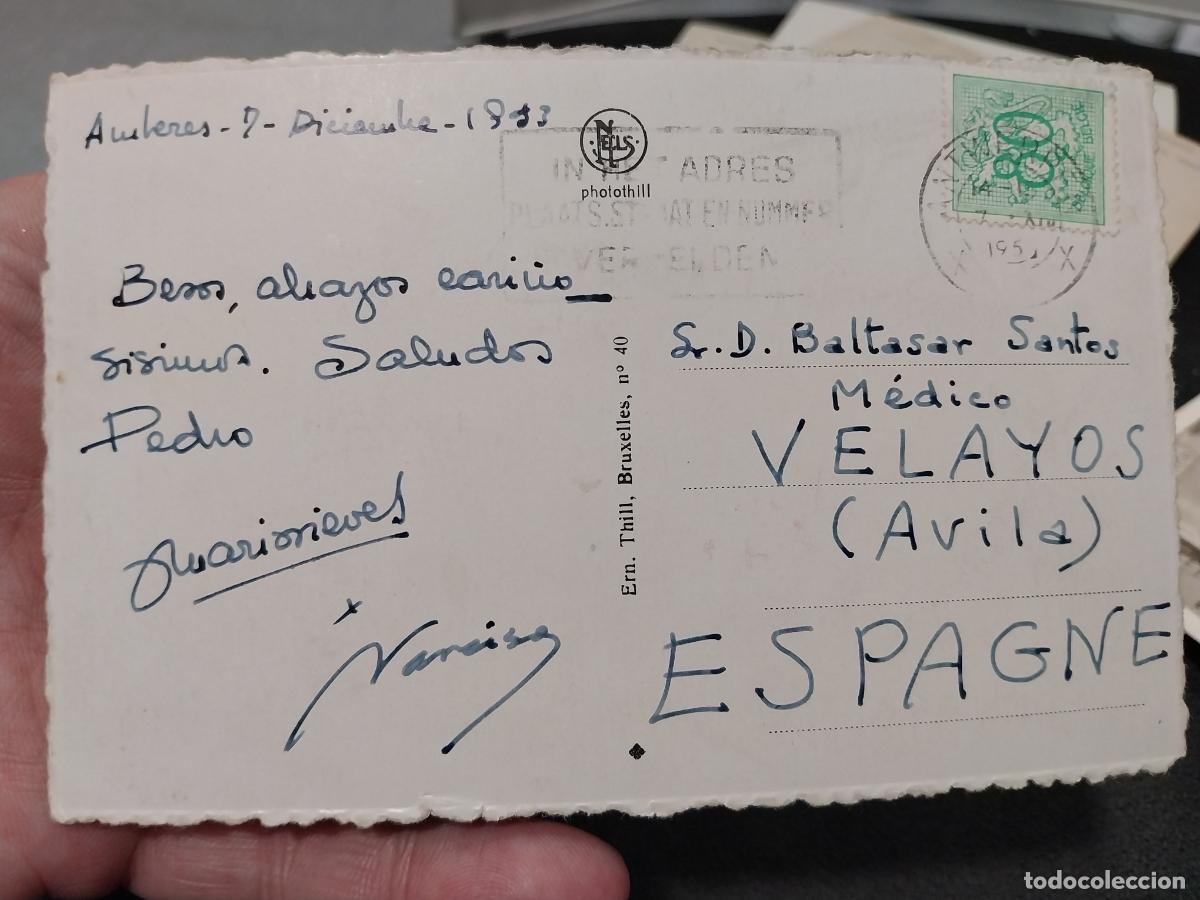 Amberes - 7 - Diciembre - 1953
NELS
photothill
IN HET ADRES
PLAATS.STRAAT EN NUMMER
VERMELDEN
80
BELGIQUE BELGIE
ANTWERPEN
14
7 XII
X 195 X
Besos, abrazos cariño_
sísimos. Saludos
Pedro
Marinieves
Narcisa
Ern. Thill, Bruxelles, nº 40
Sr. D. Baltasar Santos
Médico
VELAYOS
(Avila)
ESPAGNE
todocoleccion